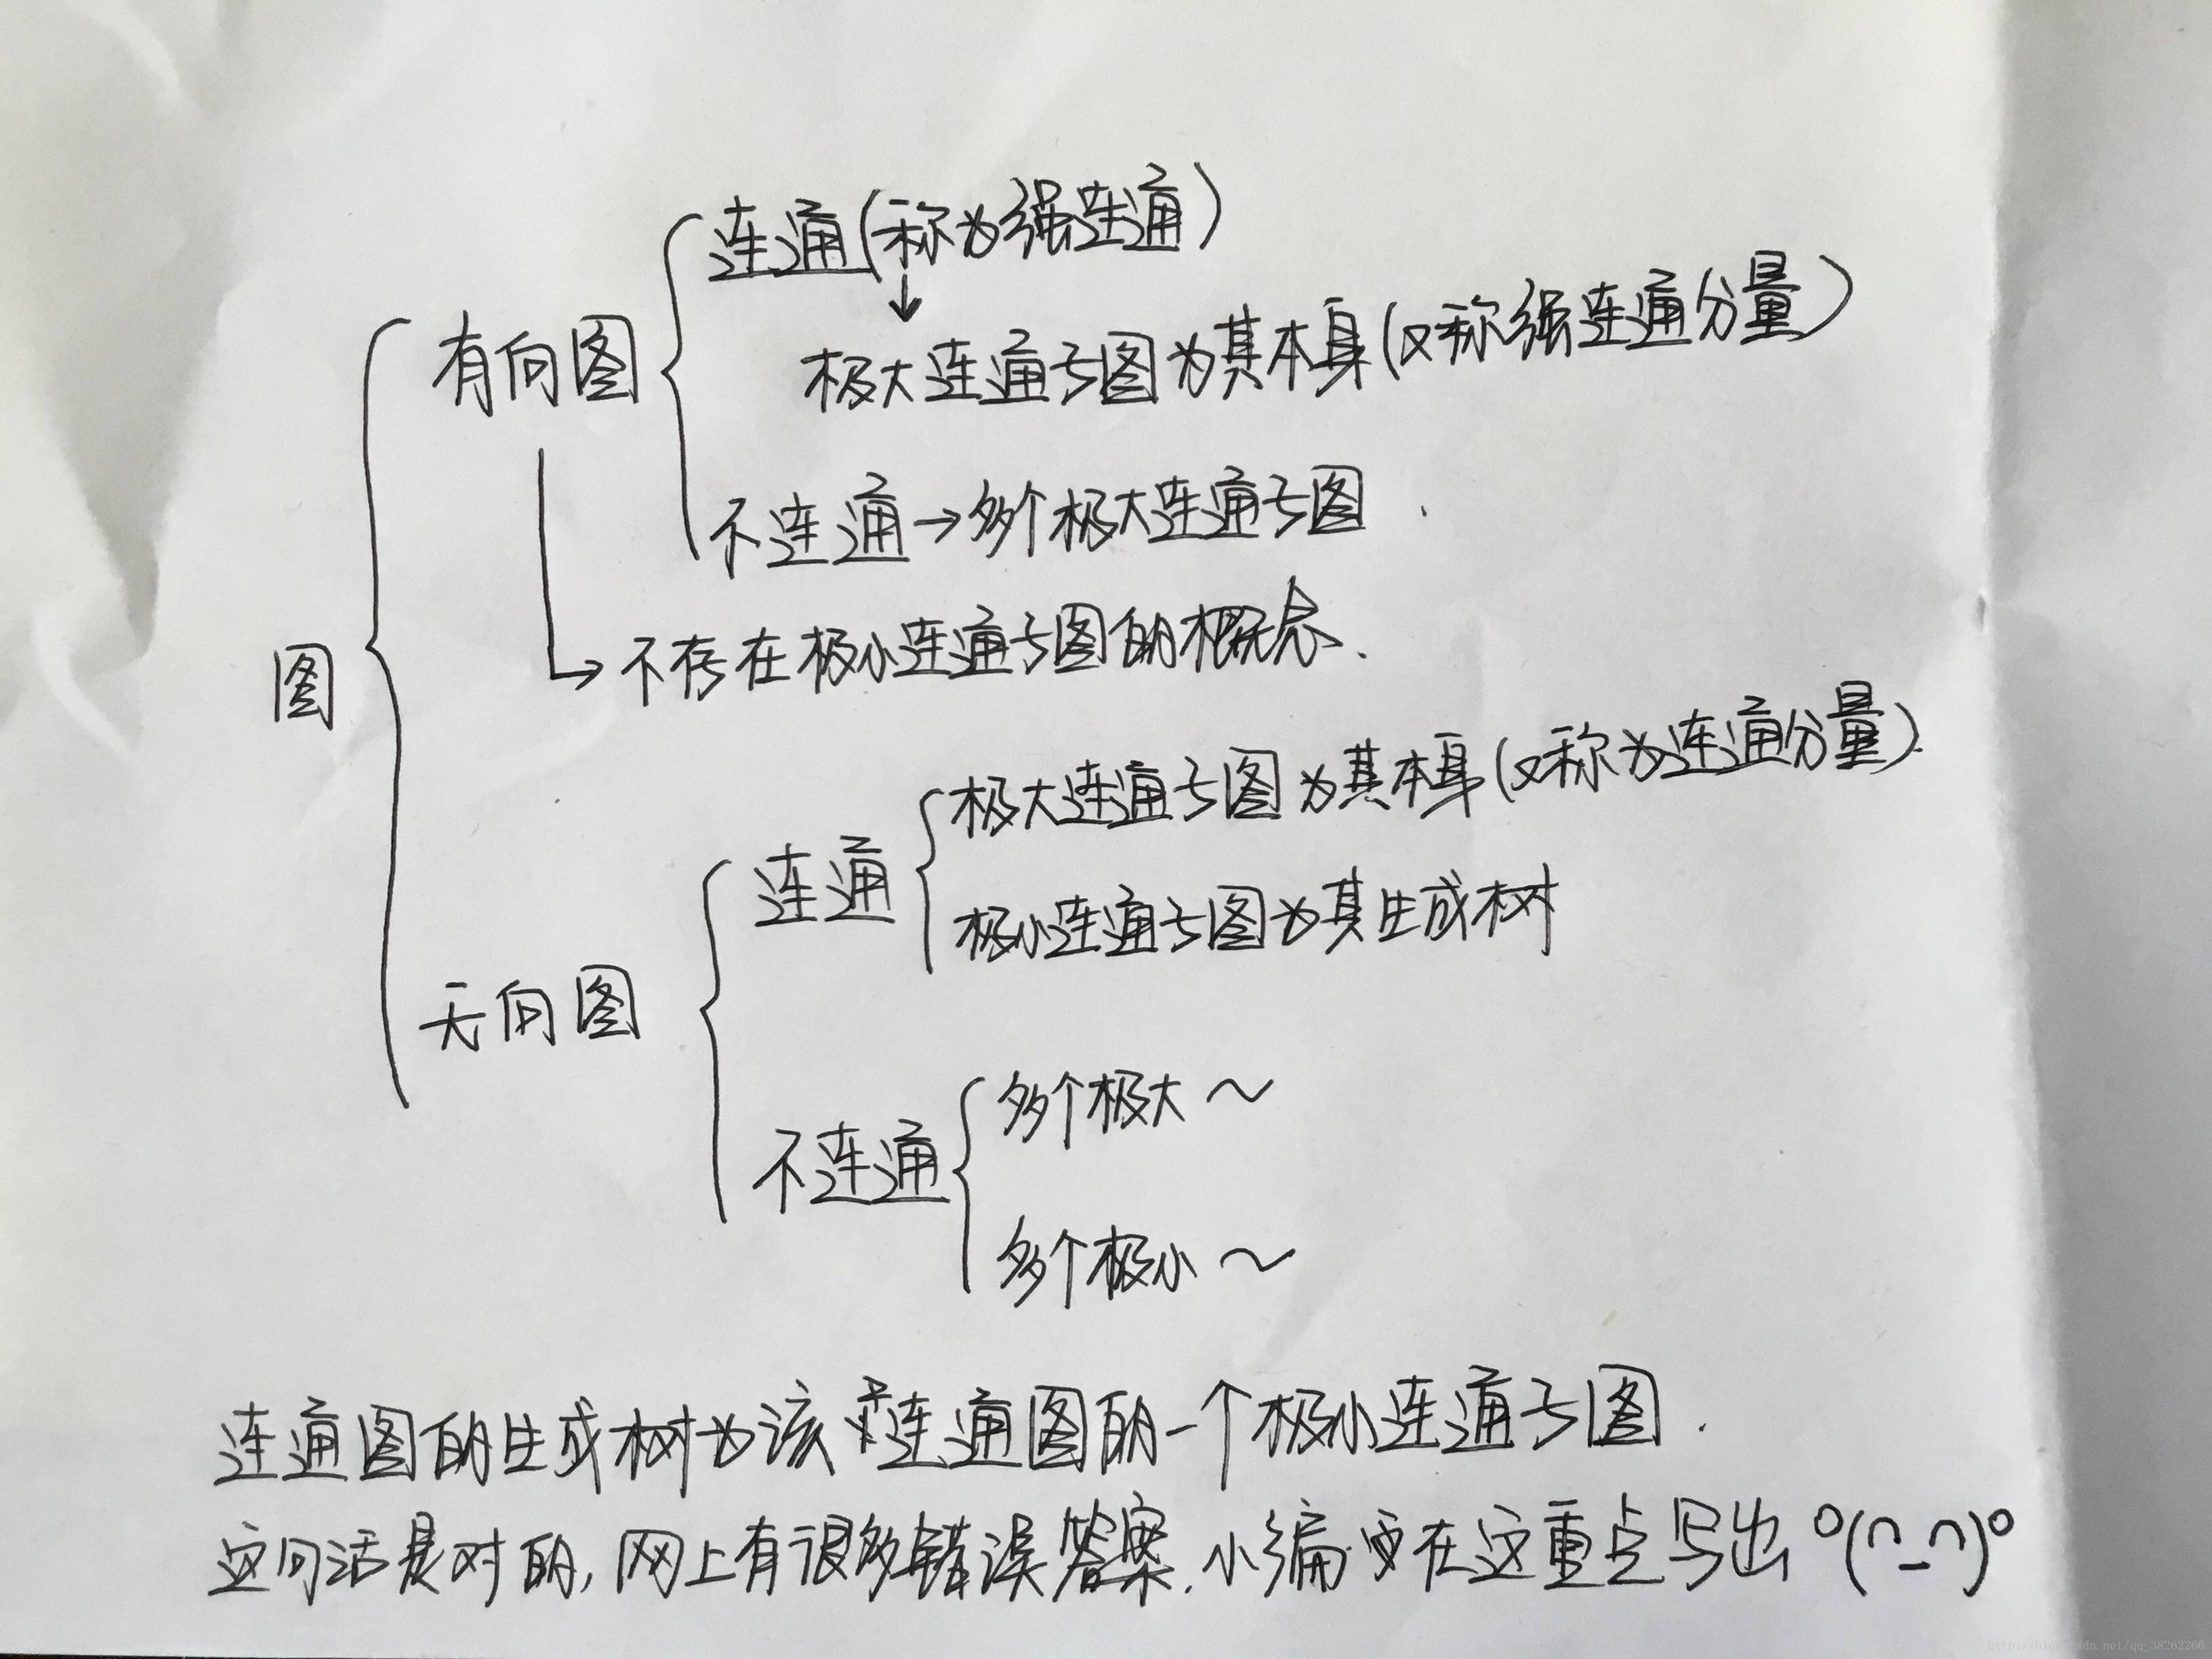 连通(称为强连通)
↓
有向图
极大连通子图为其本身(又称强连通分量)
不连通→多个极大连通子图.
不存在极小连通子图的概念.
图
极大连通子图为其本身(又称为连通分量)
连通
极小连通子图为其生成树
无向图
多个极大~
不连通
多个极小~
连通图的生成树为该连通图的一个极小连通子图.
这句话是对的,网上有很多错误答案.小编要在这重点写出 o(∩_∩)o